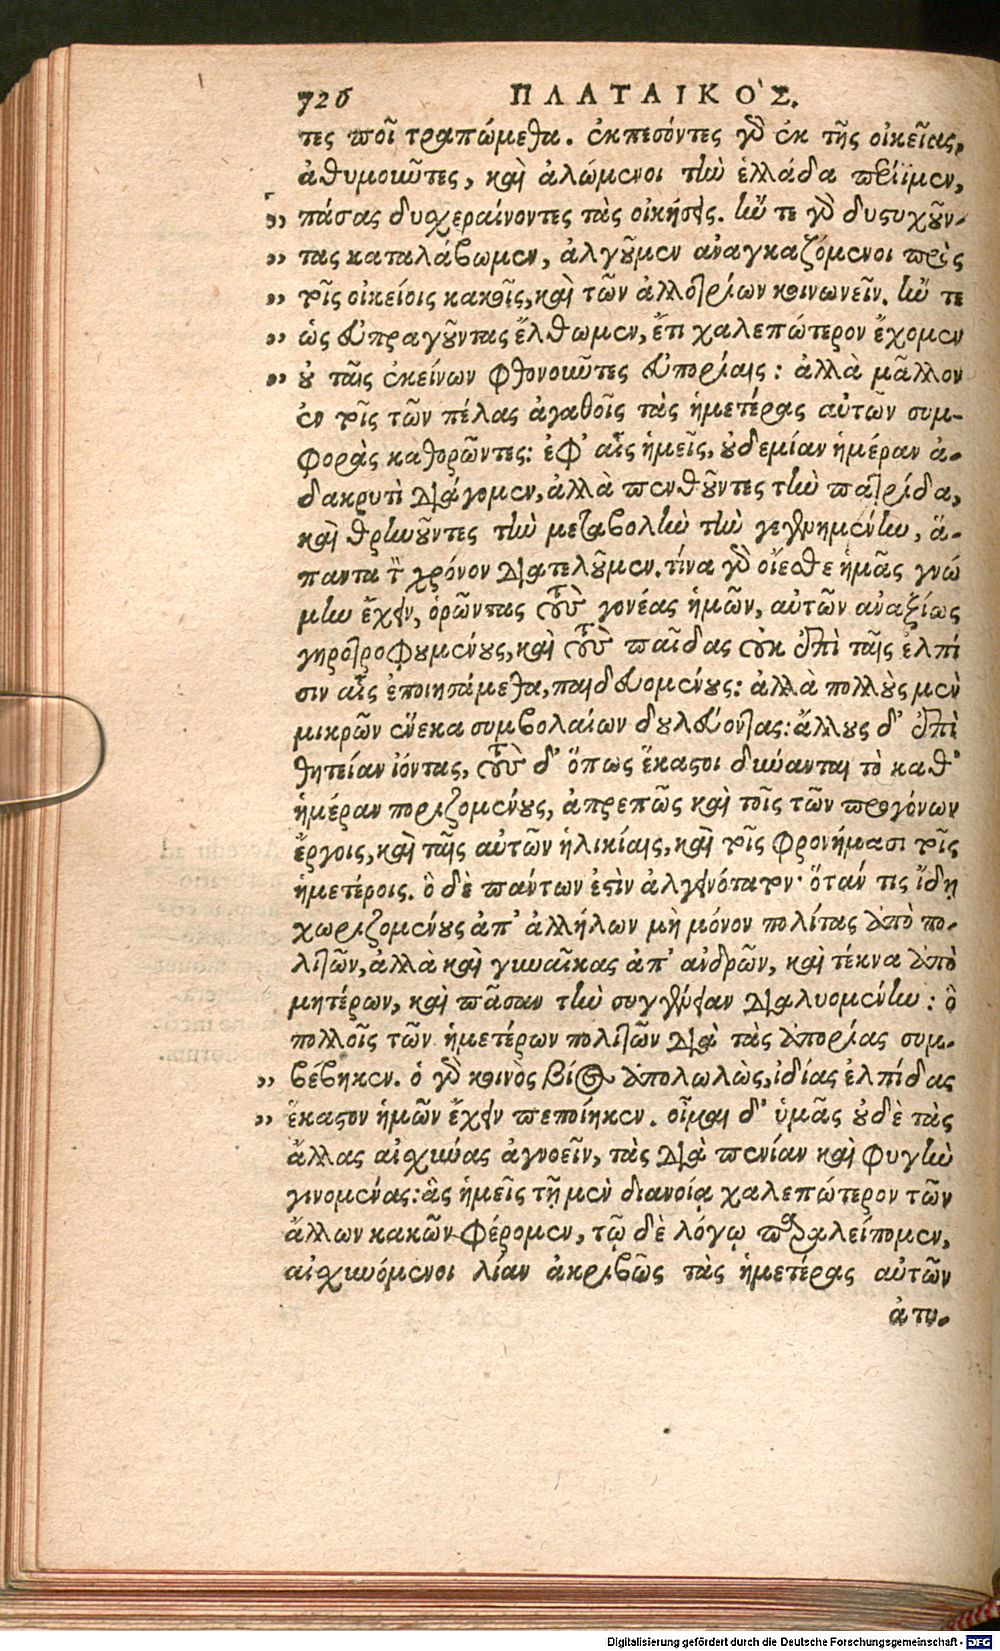 726 ΠΛΑΤΑΙΚΟ`Σ.
τες ποῖ τραπώμεθα. ἐκπεσόντες γὸ ἐκ τῆς οἰκείας,
ἀθυμοιῶτες, καὶ ἀλώμενοι τἰω ἑλλάδα πεϊίμεν,
„ πάσας δυσχεραίνοντες τὰς οἰκήσεις. ἰώ τε γὸ δυςυχοῦν-
„ τας καταλάβωμεν, ἀλγοῦμεν ἀναγκαζόμενοι πρὸς
„ τοῖς οἰκείοις κακοῖς, καὶ τῶν ἀλλοτρίων κοινωνεῖν. ἰώ τε
„ ὡς εὐπραγοῦντας ἔλθωμεν, ἔτι χαλεπώτερον ἔχομεν
„ οὐ ταῖς ἐκείνων φθονοιῶτες εὐπορίαις: ἀλλὰ μᾶλλον
ἐν τοῖς τῶν πέλας ἀγαθοῖς τὰς ἡμετέρας αὐτῶν συμ-
φορὰς καθορῶντες: ἐφ’ αἷς ἡμεῖς, οὐδεμίαν ἡμέραν ἀ-
δακρυτὶ διάγομεν, ἀλλὰ πενθοῦντες τἰω πατρίδα,
καὶ θρἰωοῦντες τἰω μεταβολἰω τἰω γεγενημένἰω, ἅ-
παντα τ χρόνον διατελοῦμεν. τίνα γὸ οἴεσθε ἡμᾶς γνώ
μἰω ἔχειν, ὁρῶντας τοὺς γονέας ἡμῶν, αὐτῶν ἀναξίως
γηροτροφουμένους, καὶ τοὺς παῖδας οὐκ ἐπὶ ταῖς ἐλπί
σιν αἷς ἐποιησάμεθα, παιδευομένους: ἀλλὰ πολλοὺς μὲν
μικρῶν ἕνεκα συμβολαίων δουλεύοντας: ἄλλους δ’ ἐπὶ
θητείαν ἰόντας, τοὺς δ’ ὅπως ἕκαςοι δύνανται τὸ καθ’
ἡμέραν ποριζομένους, ἀπρεπῶς καὶ τοῖς τῶν προγόνων
ἔργοις, καὶ ταῖς αὐτῶν ἡλικίαις, καὶ τοῖς φρονήμασι τοῖς
ἡμετέροις. ὃ δὲ πάντων ἐςὶν ἀλγεινότατον· ὅταν τις ἴδῃ
χωριζομένους ἀπ’ ἀλλήλων μὴ μόνον πολίτας ἀπὸ πο-
λιτῶν, ἀλλὰ καὶ γυναῖκας ἀπ’ ἀνδρῶν, καὶ τέκνα ἀπὸ
μητέρων, καὶ πᾶσαν τἰω συγγένειαν διαλυομένἰω: ὃ
πολλοῖς τῶν ἡμετέρων πολιτῶν διὰ τὰς ἀπορίας συμ-
„ βέβηκεν. ὁ γὸ κοινὸς βίος ἀπολωλὼς, ἰδίας ἐλπίδας
„ ἕκαςον ἡμῶν ἔχειν πεποίηκεν. οἶμαι δ’ ὑμᾶς οὐδὲ τὰς
ἄλλας αἰσχύνας ἀγνοεῖν, τὰς διὰ πενίαν καὶ φυγἰω
γινομένας: ἃς ἡμεῖς τῇ μὲν διανοίᾳ χαλεπώτερον τῶν
ἄλλων κακῶν φέρομεν, τῷ δὲ λόγῳ παραλείπομεν,
αἰσχυνόμενοι λίαν ἀκριβῶς τὰς ἡμετέρας αὐτῶν
ἀπο-
Digitalisierung gefördert durch die Deutsche Forschungsgemeinschaft - DFG